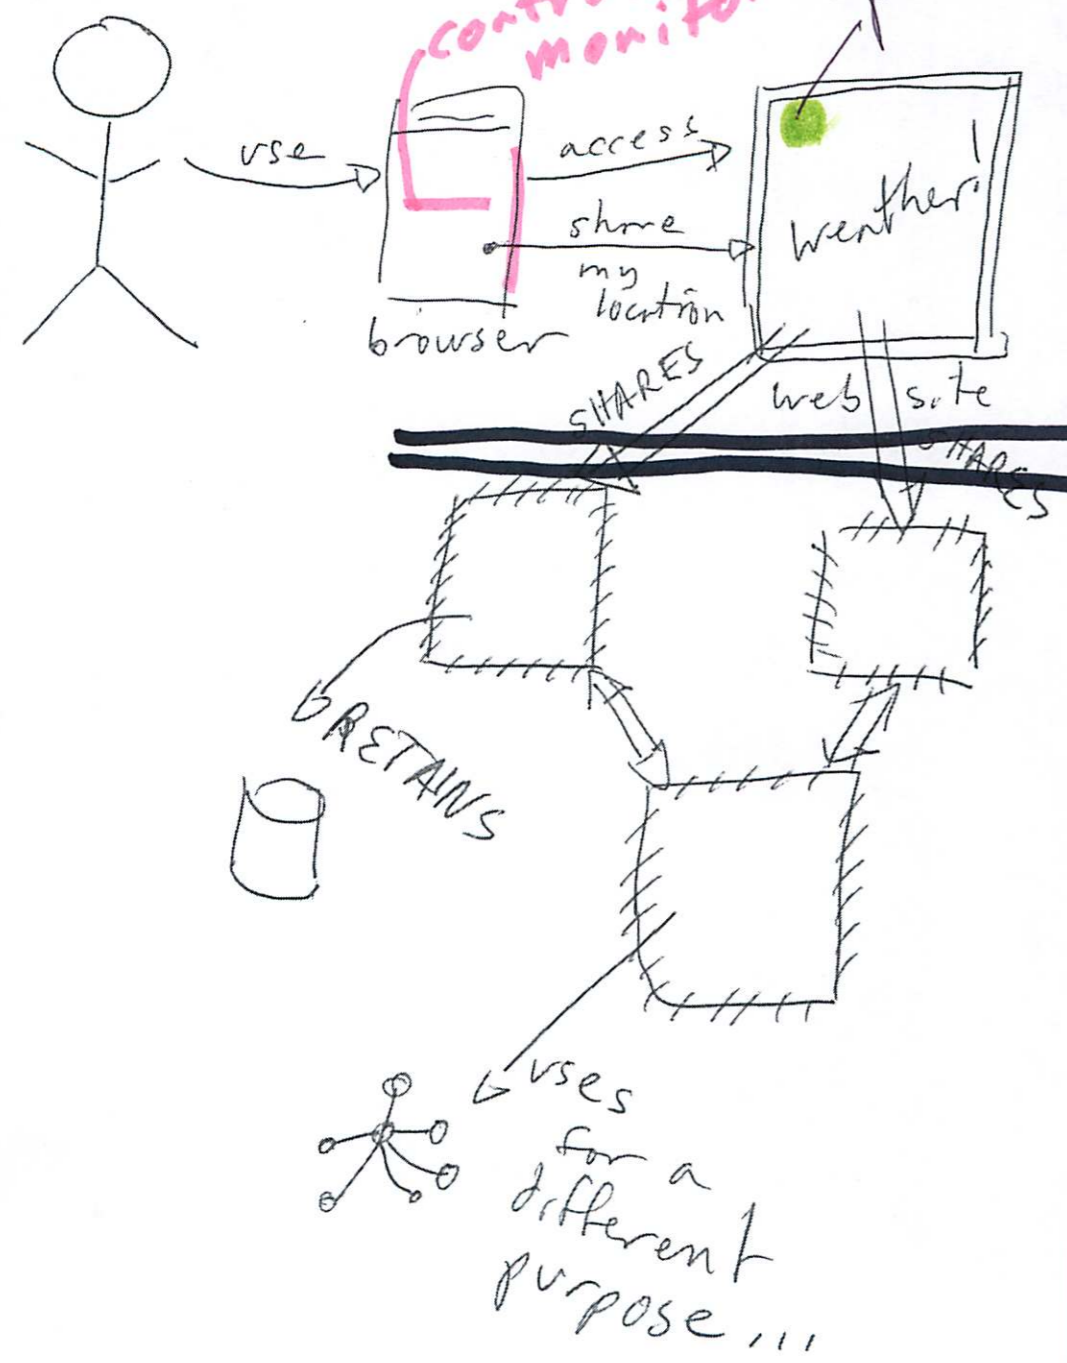 monito
use
access
share
my
location
weather!
browser
web site
SHARES
SHARES
RETAINS
uses
for a
different
purpose...